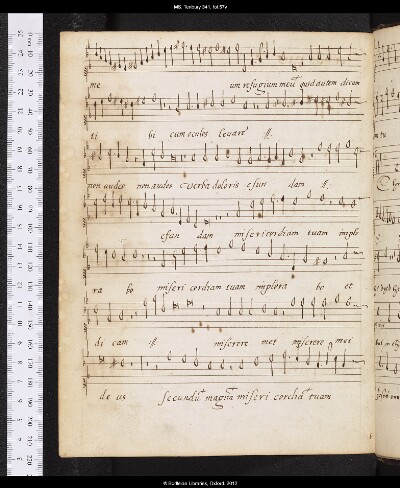 MS. Tenbury 341, fol. 57v
me um refugium meū quid autem dicam
ti bi cum oculos levare ij.
non audeo non audes Verba doloris efun dam ij.
efun dam misericordiam tuam implo
ra bo miseri cordiam tuam implora bo et
di cam ij. miserere mei miserere mei
de us secundū magnā miseri cordiā tuam
© Bodleian Libraries, Oxford, 2012